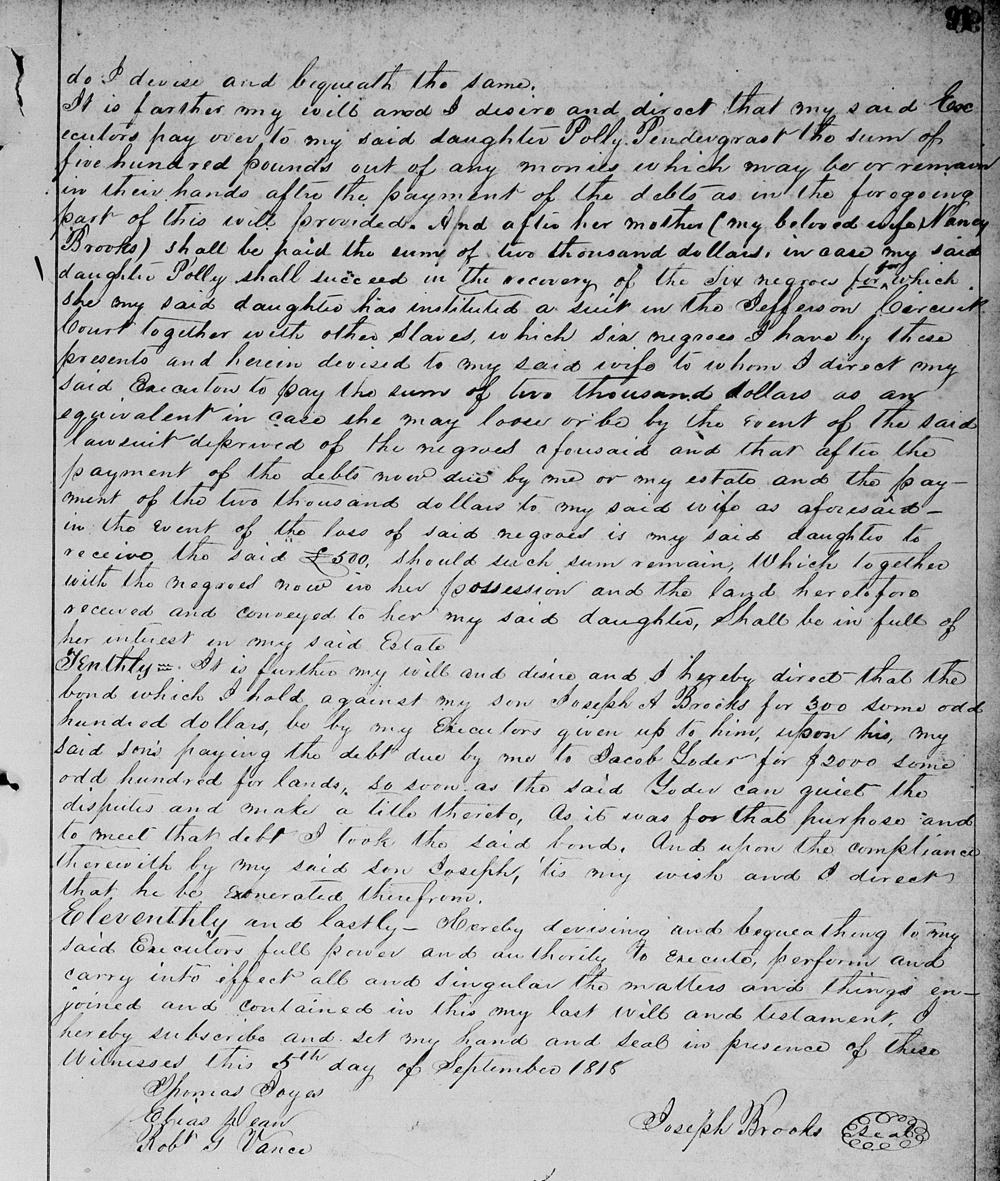 do I devise and bequeath the same.
It is farther my will and I desire and direct that my said Exe
cutors pay over to my said daughter Polly Pendergrast the sum of
five hundred pounds out of any monies which may be or remain
in their hands after the payment of the debts as in the foregoing
part of this will provided. And after her mother (my beloved wife Nancy
Brooks) shall be paid the sum of two thousand dollars, in case my said
daughter Polly shall succeed in the recovery of the Six negroes for which
she my said daughter has instituted a suit in the Jefferson Circuit
Court together with other Slaves, which six negroes I have by these
presents and herein devised to my said wife to whom I direct my
said Executors to pay the sum of two thousand dollars as an
equivalent in case she may loose or be by the event of the said
lawsuit deprived of the negroes aforesaid and that after the
payment of the debts now due by me or my estate and the pay–
ment of the two thousand dollars to my said wife as aforesaid–
in the event of the loss of said negroes is my said daughter to
receive the said £500, should such sum remain, Which together
with the negroes now in her possession and the land heretofore
received and conveyed to her my said daughter, Shall be in full of
her interest in my said Estate
Tenthly=. It is further my will and desire and I hereby direct that the
bond which I hold against my son Joseph A Brooks for 300 some odd
hundred dollars, be by my Executors given up to him, upon his, my
said son's paying the debt due by me to Jacob Yoder for $2000 some
odd hundred for lands, so soon as the said Yoder can quiet the
disputes and make a title thereto, As it was for that purpose and
to meet that debt I took the said bond. And upon the compliance
therewith by my said son Joseph, 'tis my wish and I direct
that he be exonerated therefrom.
Eleventhly and lastly– Hereby devising and bequeathing to my
said Executors full power and authority to execute, perform and
carry into effect all and singular the matters and things en–
joined and contained in this my last will and testament. I
hereby subscribe and set my hand and seal in presence of these
Witnesses this 5th day of September 1818
Thomas Joyes
Elias Dean
Robt G Vance
Joseph Brooks Seal